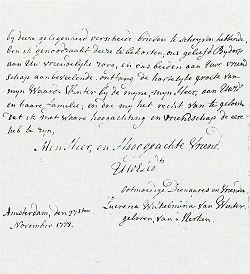 by deeze gelegenheid verscheide brieven te schryven hebbende,
ben ik genoodzaakt deeze te bekorten, ons geliefd
aan Uw vriendelyke zorg, en ons beiden aan Uwe vriend
schap aanbevelende, ontfang de hartelyke groete van
myn Waarde Winter by de myne, myn Heer, aan
en haare familie, en doe my het recht van te gelooven
dat ik met waare hoogachting en vriendschap de eere
heb te zyn,
Myn Heer, en Hooggeachte Vriend.
ootmoedige Dienaares en Vriendin
Lucretia Wilhelmina van Winter,
geboren van Merken
Amsterdam, den 27sten
November 1777.